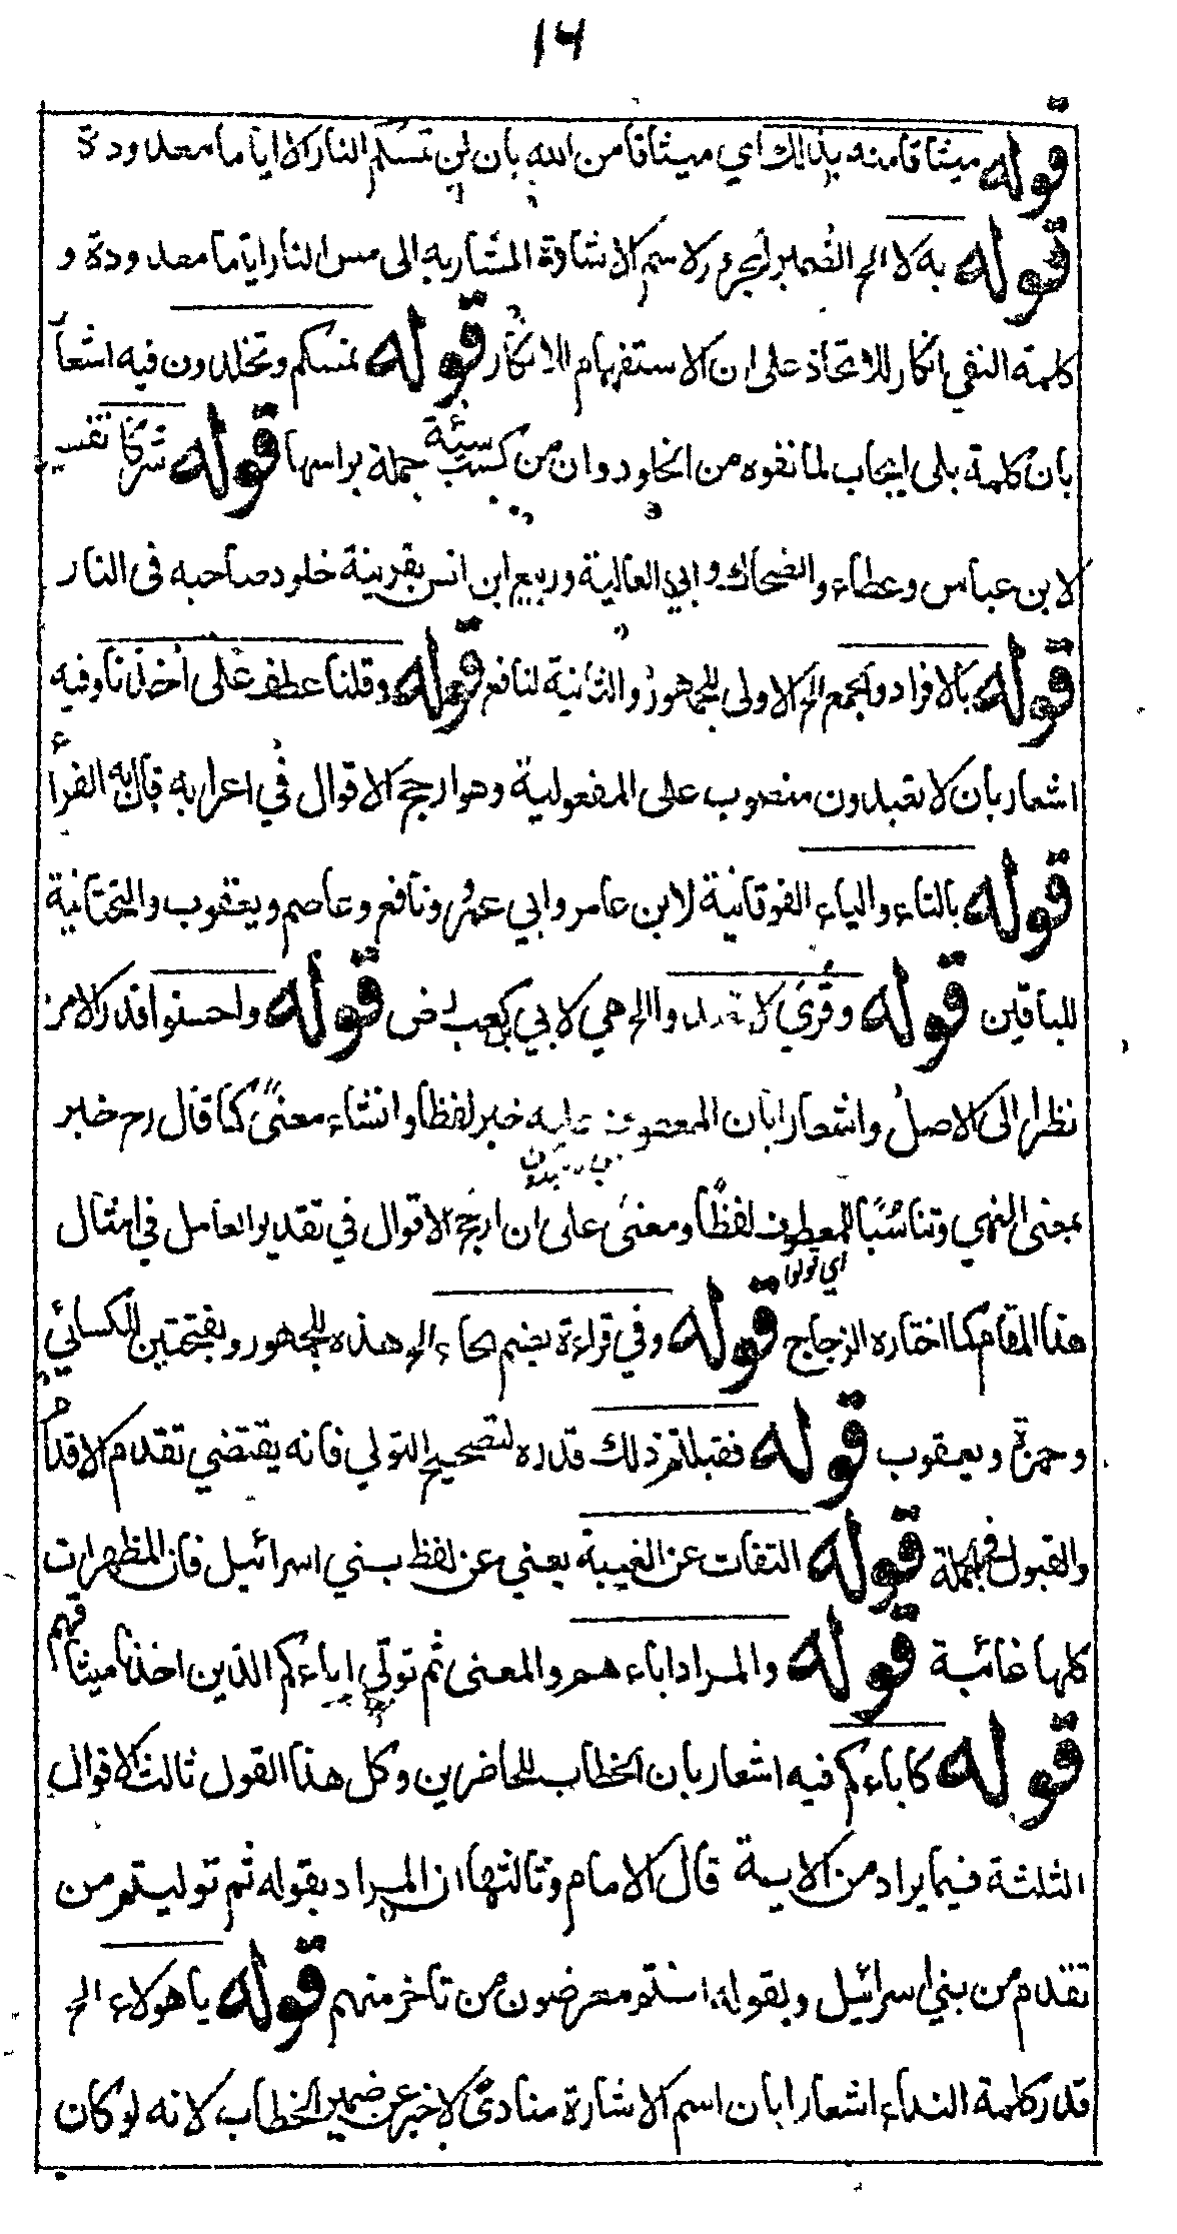 ١٤
قوله ميثاقا منه بذلك اي ميثاقا من الله بان لن تمسكم النار الا اياما معدودة
قوله به لا الخ الضمير المجرور لاسم الاشارة المشار به الى مس النار اياما معدودة و
كلمة النفي انكار للاتخاذ على ان الاستفهام الانكار قوله تمسكم وتخلدون فيه اشعا
بان كلمة بلى ايجاب لما نفوه من الخلود وان من كسب سيئة جملة براسها قوله شركا تفسير
لابن عباس وعطاء والضحاك وابي العالية وربيع ابن انس بقرينة خلود صاحبه فى النار
قوله بالافراد والجمع الخ الاولى للجمهور والثانية لنافع قوله وقلنا عطف على اخذنا وفيه
اشعار بان لا تعبدون منصوب على المفعولية وهو ارجح الاقوال في اعرابه قال به الفرأ
قوله بالتاء والياء الفوقانية لابن عامر وابي عمر ونافع وعاصم ويعقوب والتحتانية
للباقين قوله وقرئ لا تعبدوا الخ هي لابي بن كعب رض قوله واحسنوا قدر الامر
نظرا الى الاصل واشعارا بان المعطوف عليه خبر لفظا وانشاء معنىً كما قال رح خبر
بمعنى النهي وتناسُبًا للمعطوف لفظًا ومعنىً على ان ارجح الاقوال في تقدير العامل في امثال
اي قولوا
هذا المقام كما اختاره الزجاج قوله وفي قراءة بضم الحاء الخ هذه للجمهور وبفتحتين للكسائي
وحمزة ويعقوب قوله فقبلتم ذلك قدره لتصحيح التولي فانه يقتضي تقدم الاقدام
والقبول في الجملة قوله التفات عن الغيبة يعني عن لفظ بني اسرائيل فان المظهرات
كلها غائبة قوله والمراد اباءهم والمعنى ثم تولى اباءكم الذين اخذنا ميثاقهم
قوله كاباءكم فيه اشعار بان الخطاب للحاضرين وكل هذا القول ثالث الاقوال
الثلثة فيما يراد من الاية قال الامام وثالثها ان المراد بقوله ثم توليتم من
تقدم من بني اسرائيل وبقوله انتم معرضون من تاخر منهم قوله يا هولاء الخ
قدر كلمة النداء اشعارا بان اسم الاشارة منادىً لا خبر عن ضمير الخطاب لانه لو كان